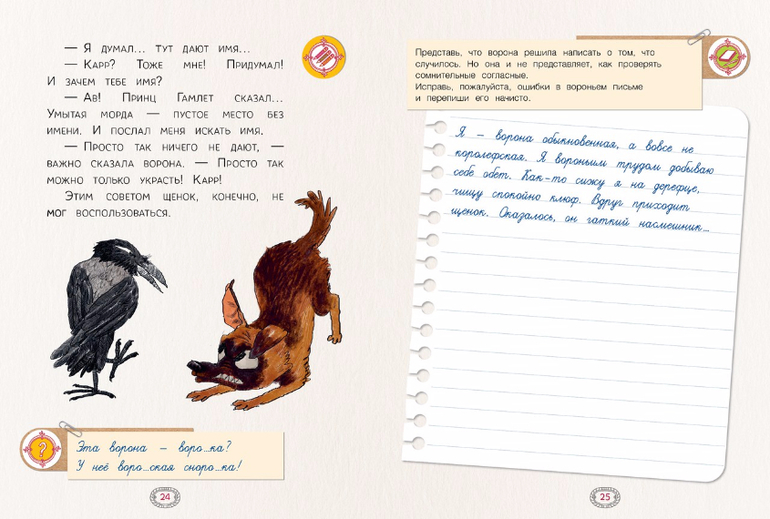 — Я думал... тут дают имя...
— Карр? Тоже мне! Придумал!
И зачем тебе имя?
— Ав! Принц Гамлет сказал...
Умытая морда — пустое место без
имени. И послал меня искать имя.
— Просто так ничего не дают, —
важно сказала ворона. — Просто так
можно только украсть! Карр!
Этим советом щенок, конечно, не
мог воспользоваться.
Эта ворона – воро...ка?
У неё воро...ская сноро...ка!
24
Представь, что ворона решила написать о том, что
случилось. Но она и не представляет, как проверять
сомнительные согласные.
Исправь, пожалуйста, ошибки в вороньем письме
и перепиши его начисто.
Я – ворона обыкновенная, а вовсе не
королефская. Я вороньим трудом добываю
себе обет. Как-то сижу я на дерефце,
чищу спокойно клюф. Вдруг приходит
щенок. Оказалось, он гаткий насмешник...
25